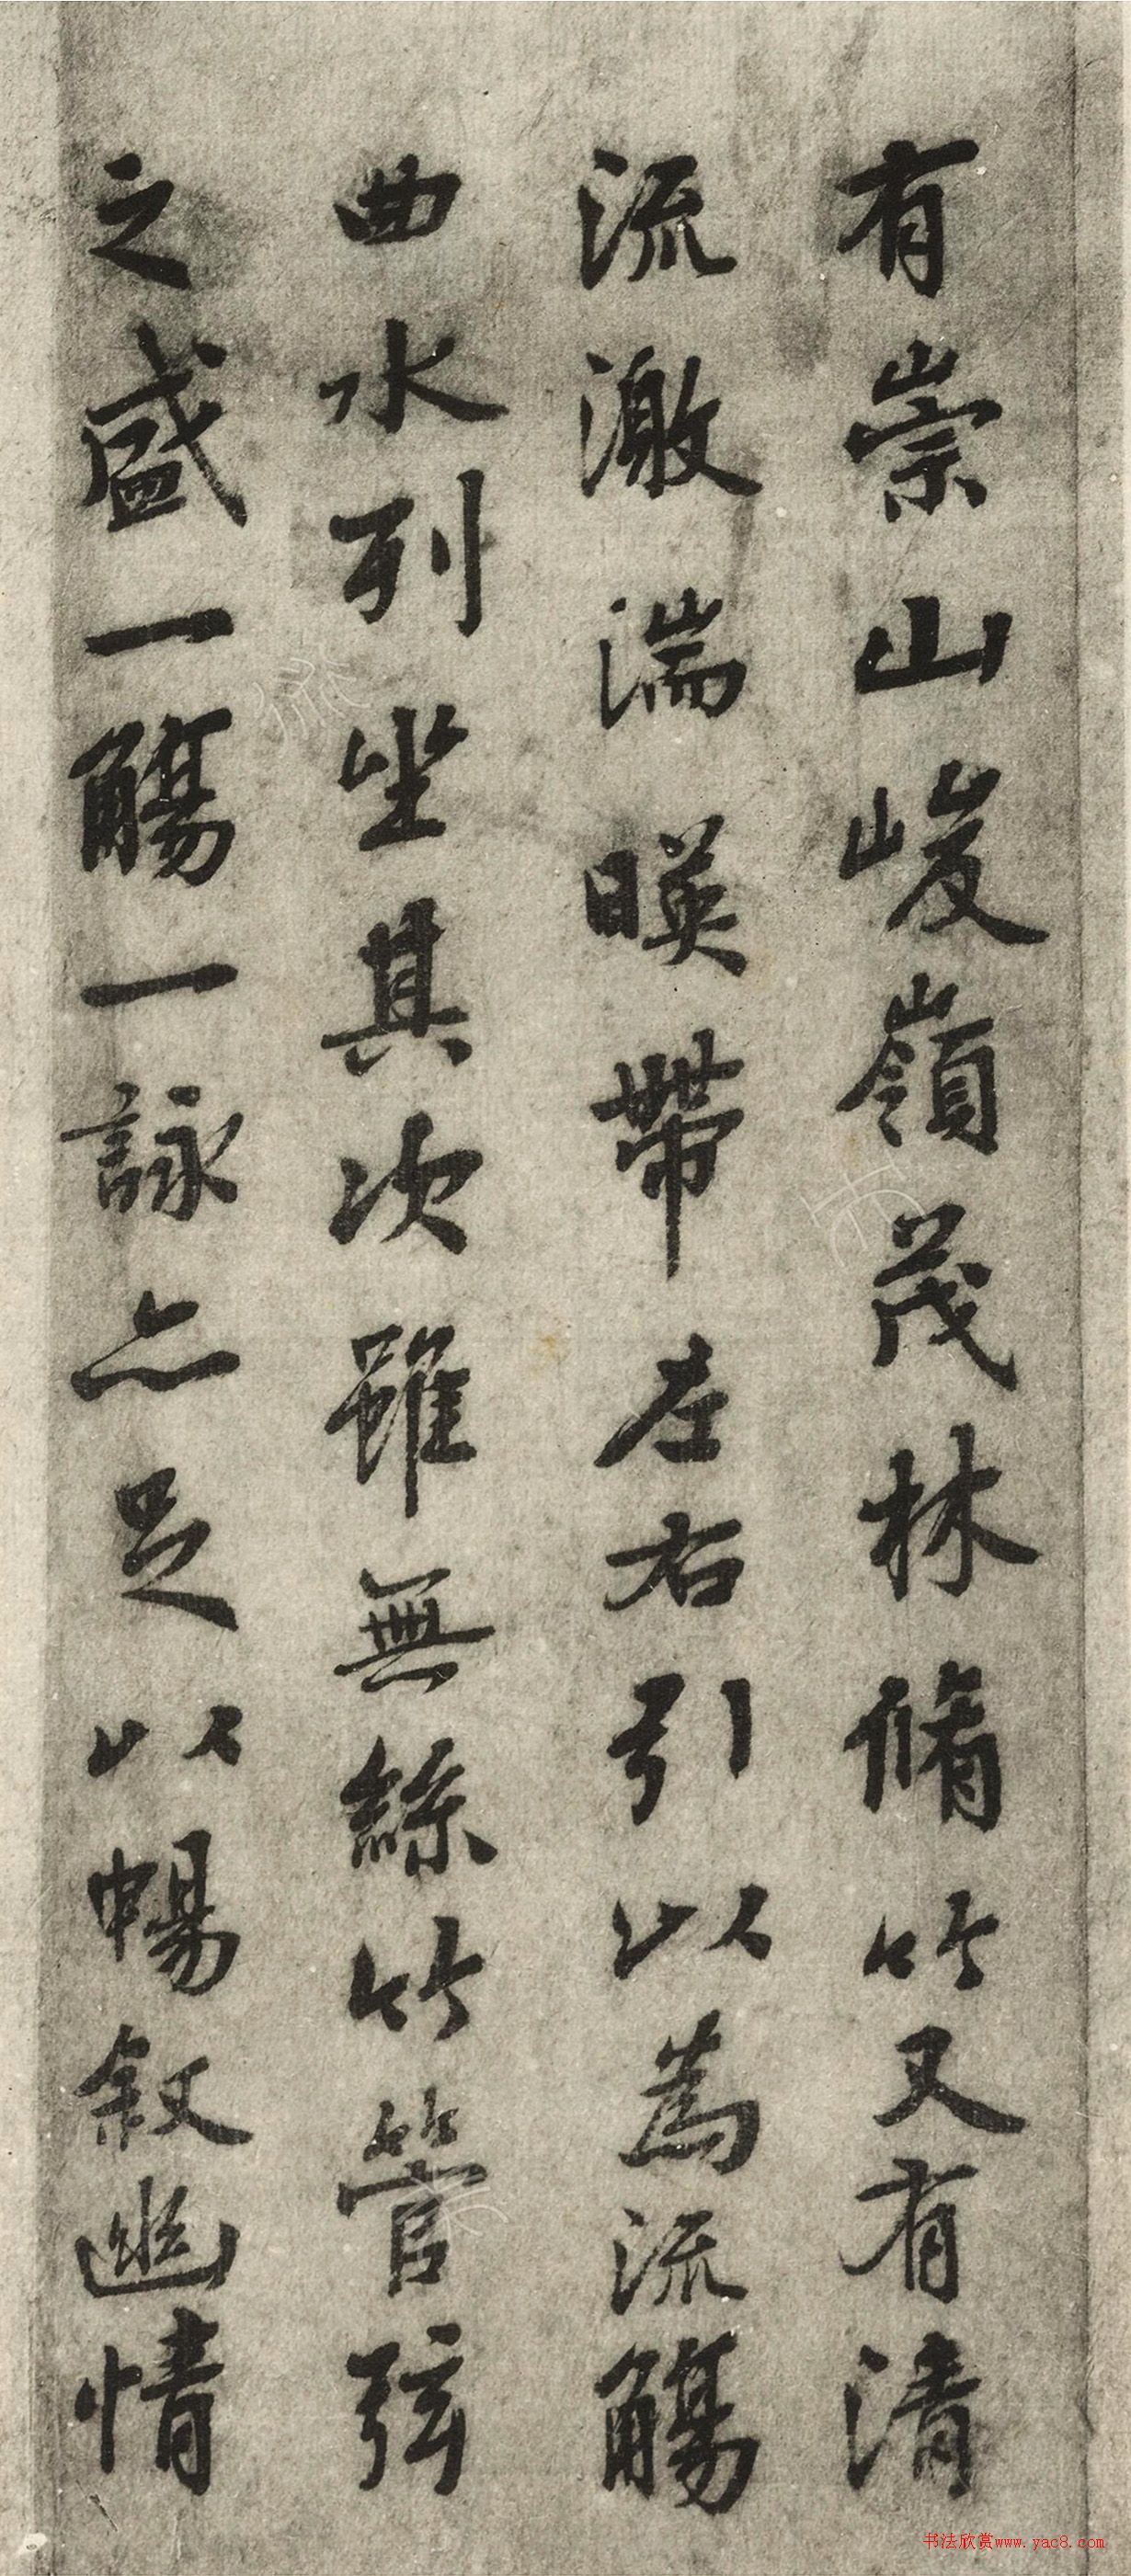 有崇山峻嶺茂林脩竹又有清
流激湍暎帶左右引以為流觴
曲水列坐其次雖無絲竹管弦
之盛一觴一詠亦足以暢叙幽情
书法欣赏www.yac8.com